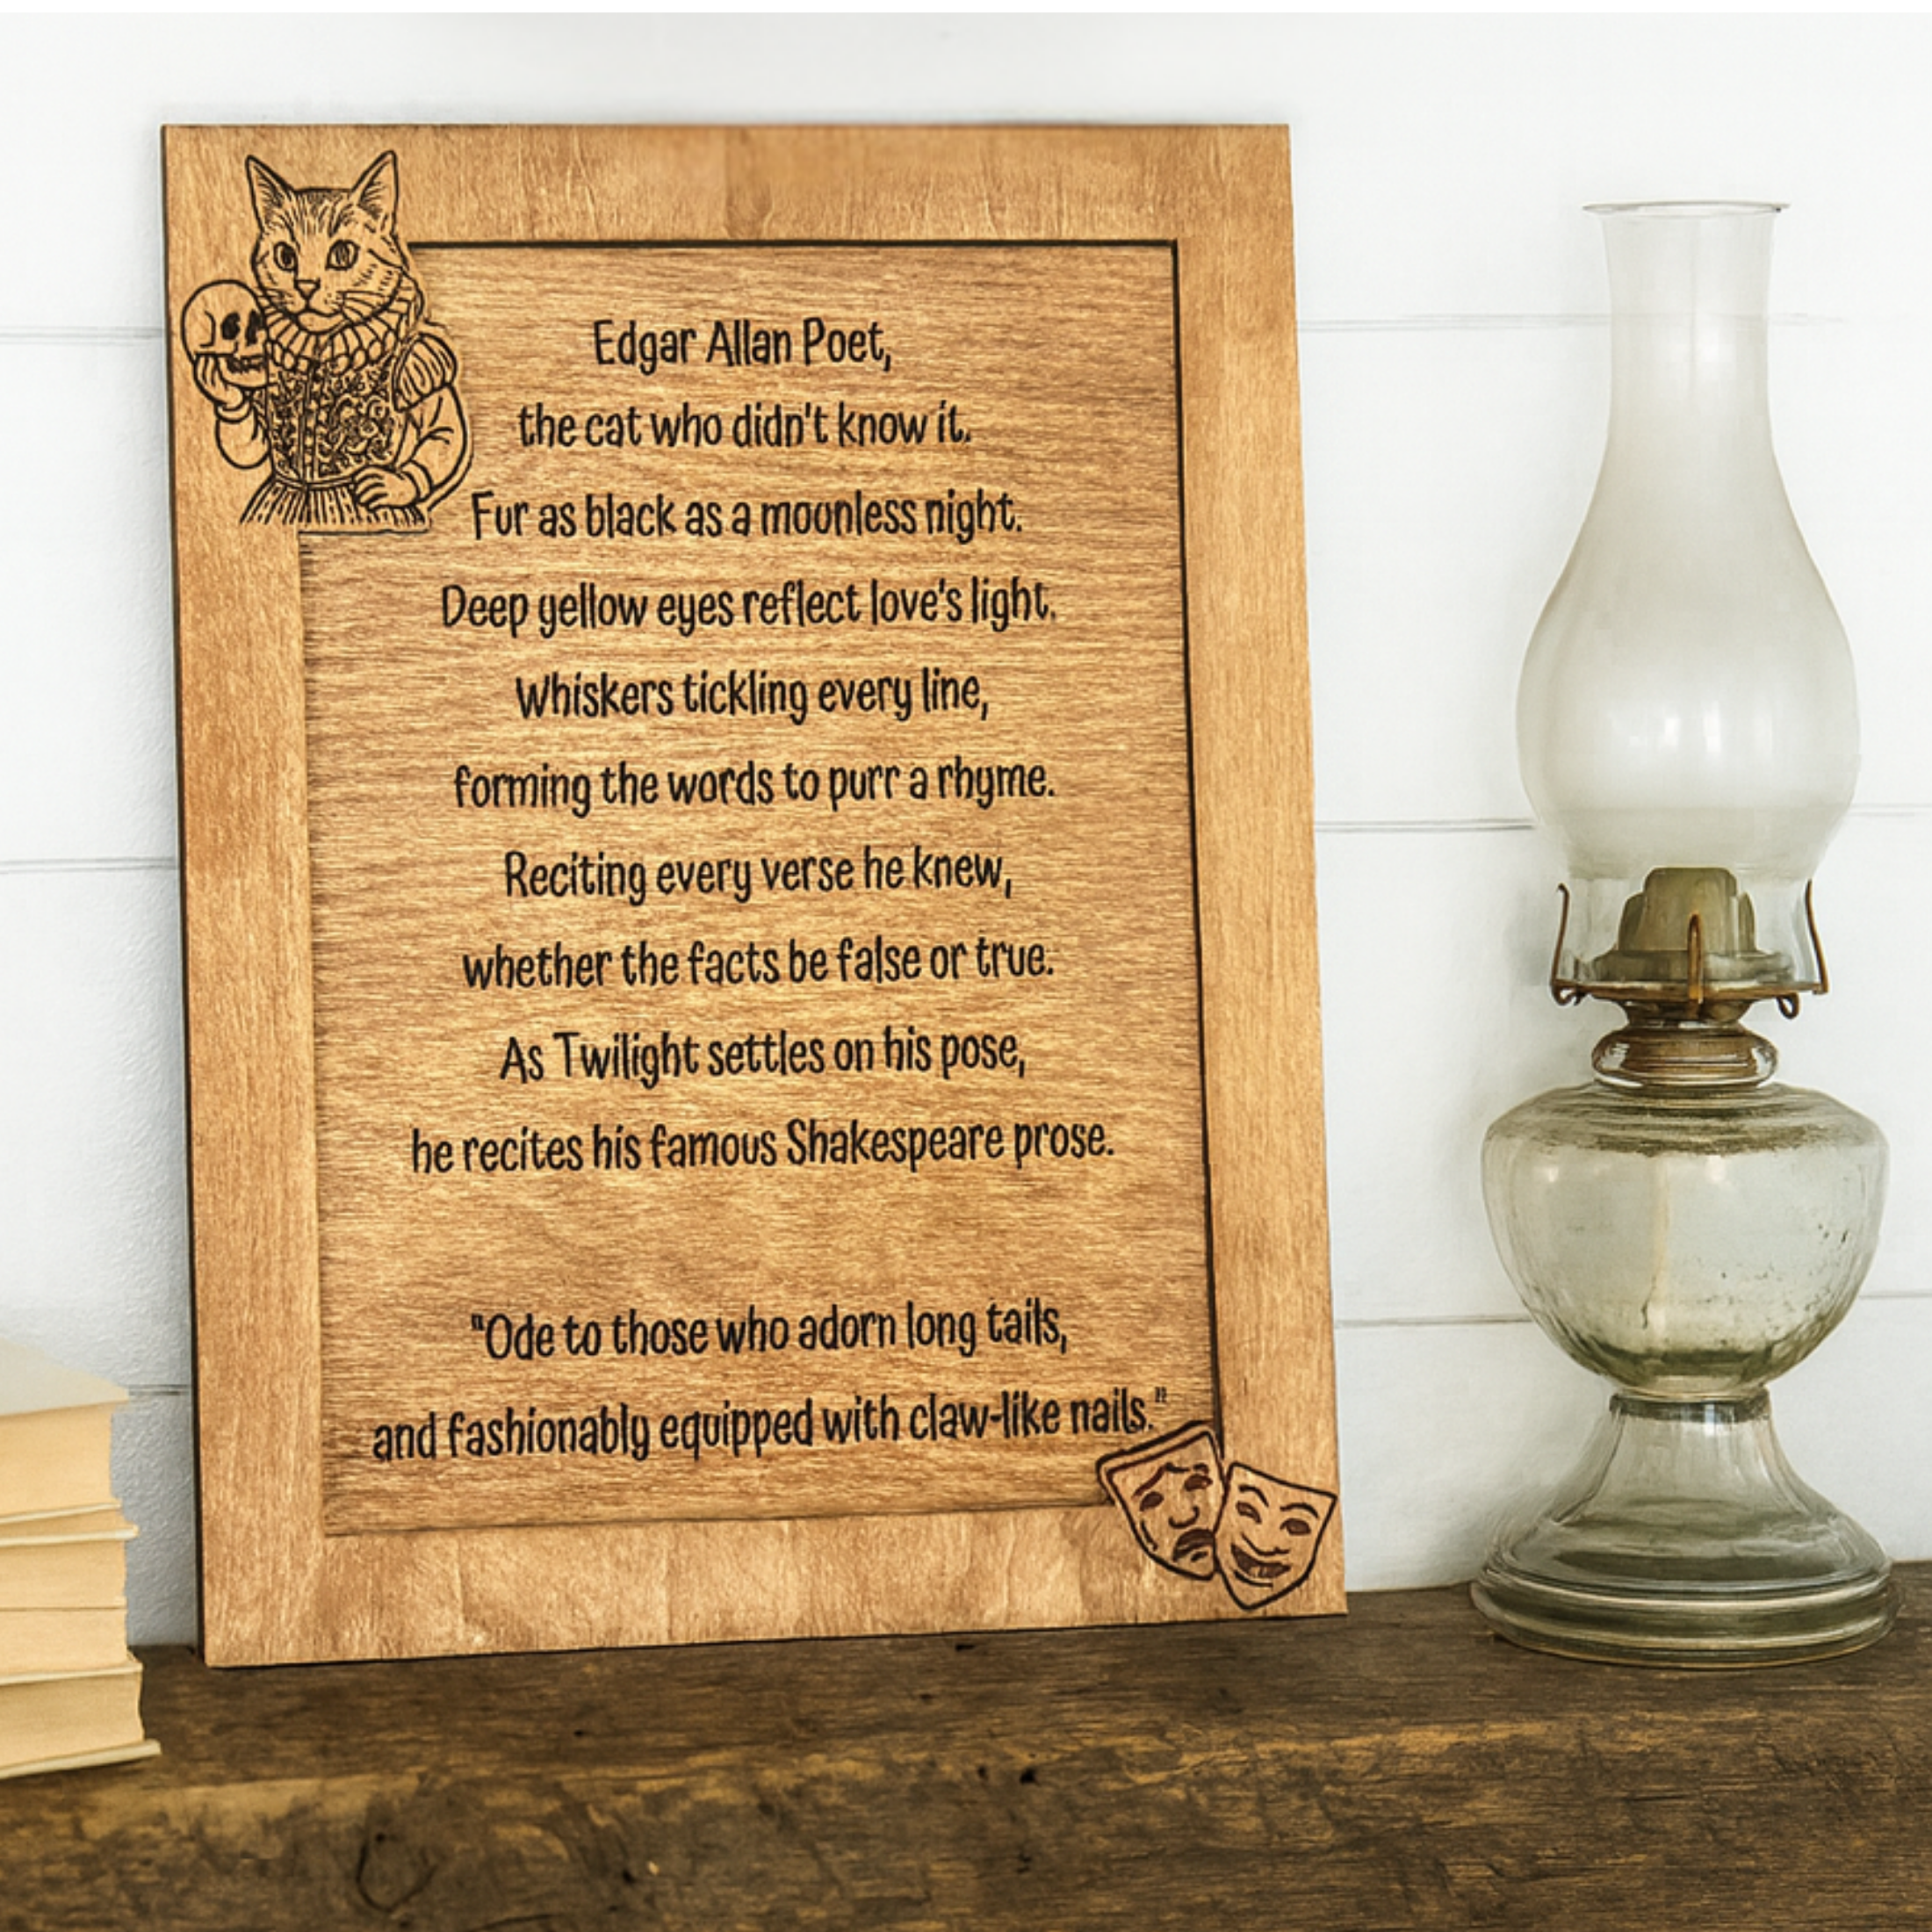 Edgar Allan Poet,
the cat who didn't know it.
Fur as black as a moonless night.
Deep yellow eyes reflect love's light.
Whiskers tickling every line,
forming the words to purr a rhyme.
Reciting every verse he knew,
whether the facts be false or true.
As Twilight settles on his pose,
he recites his famous Shakespeare prose.
"Ode to those who adorn long tails,
and fashionably equipped with claw-like nails."